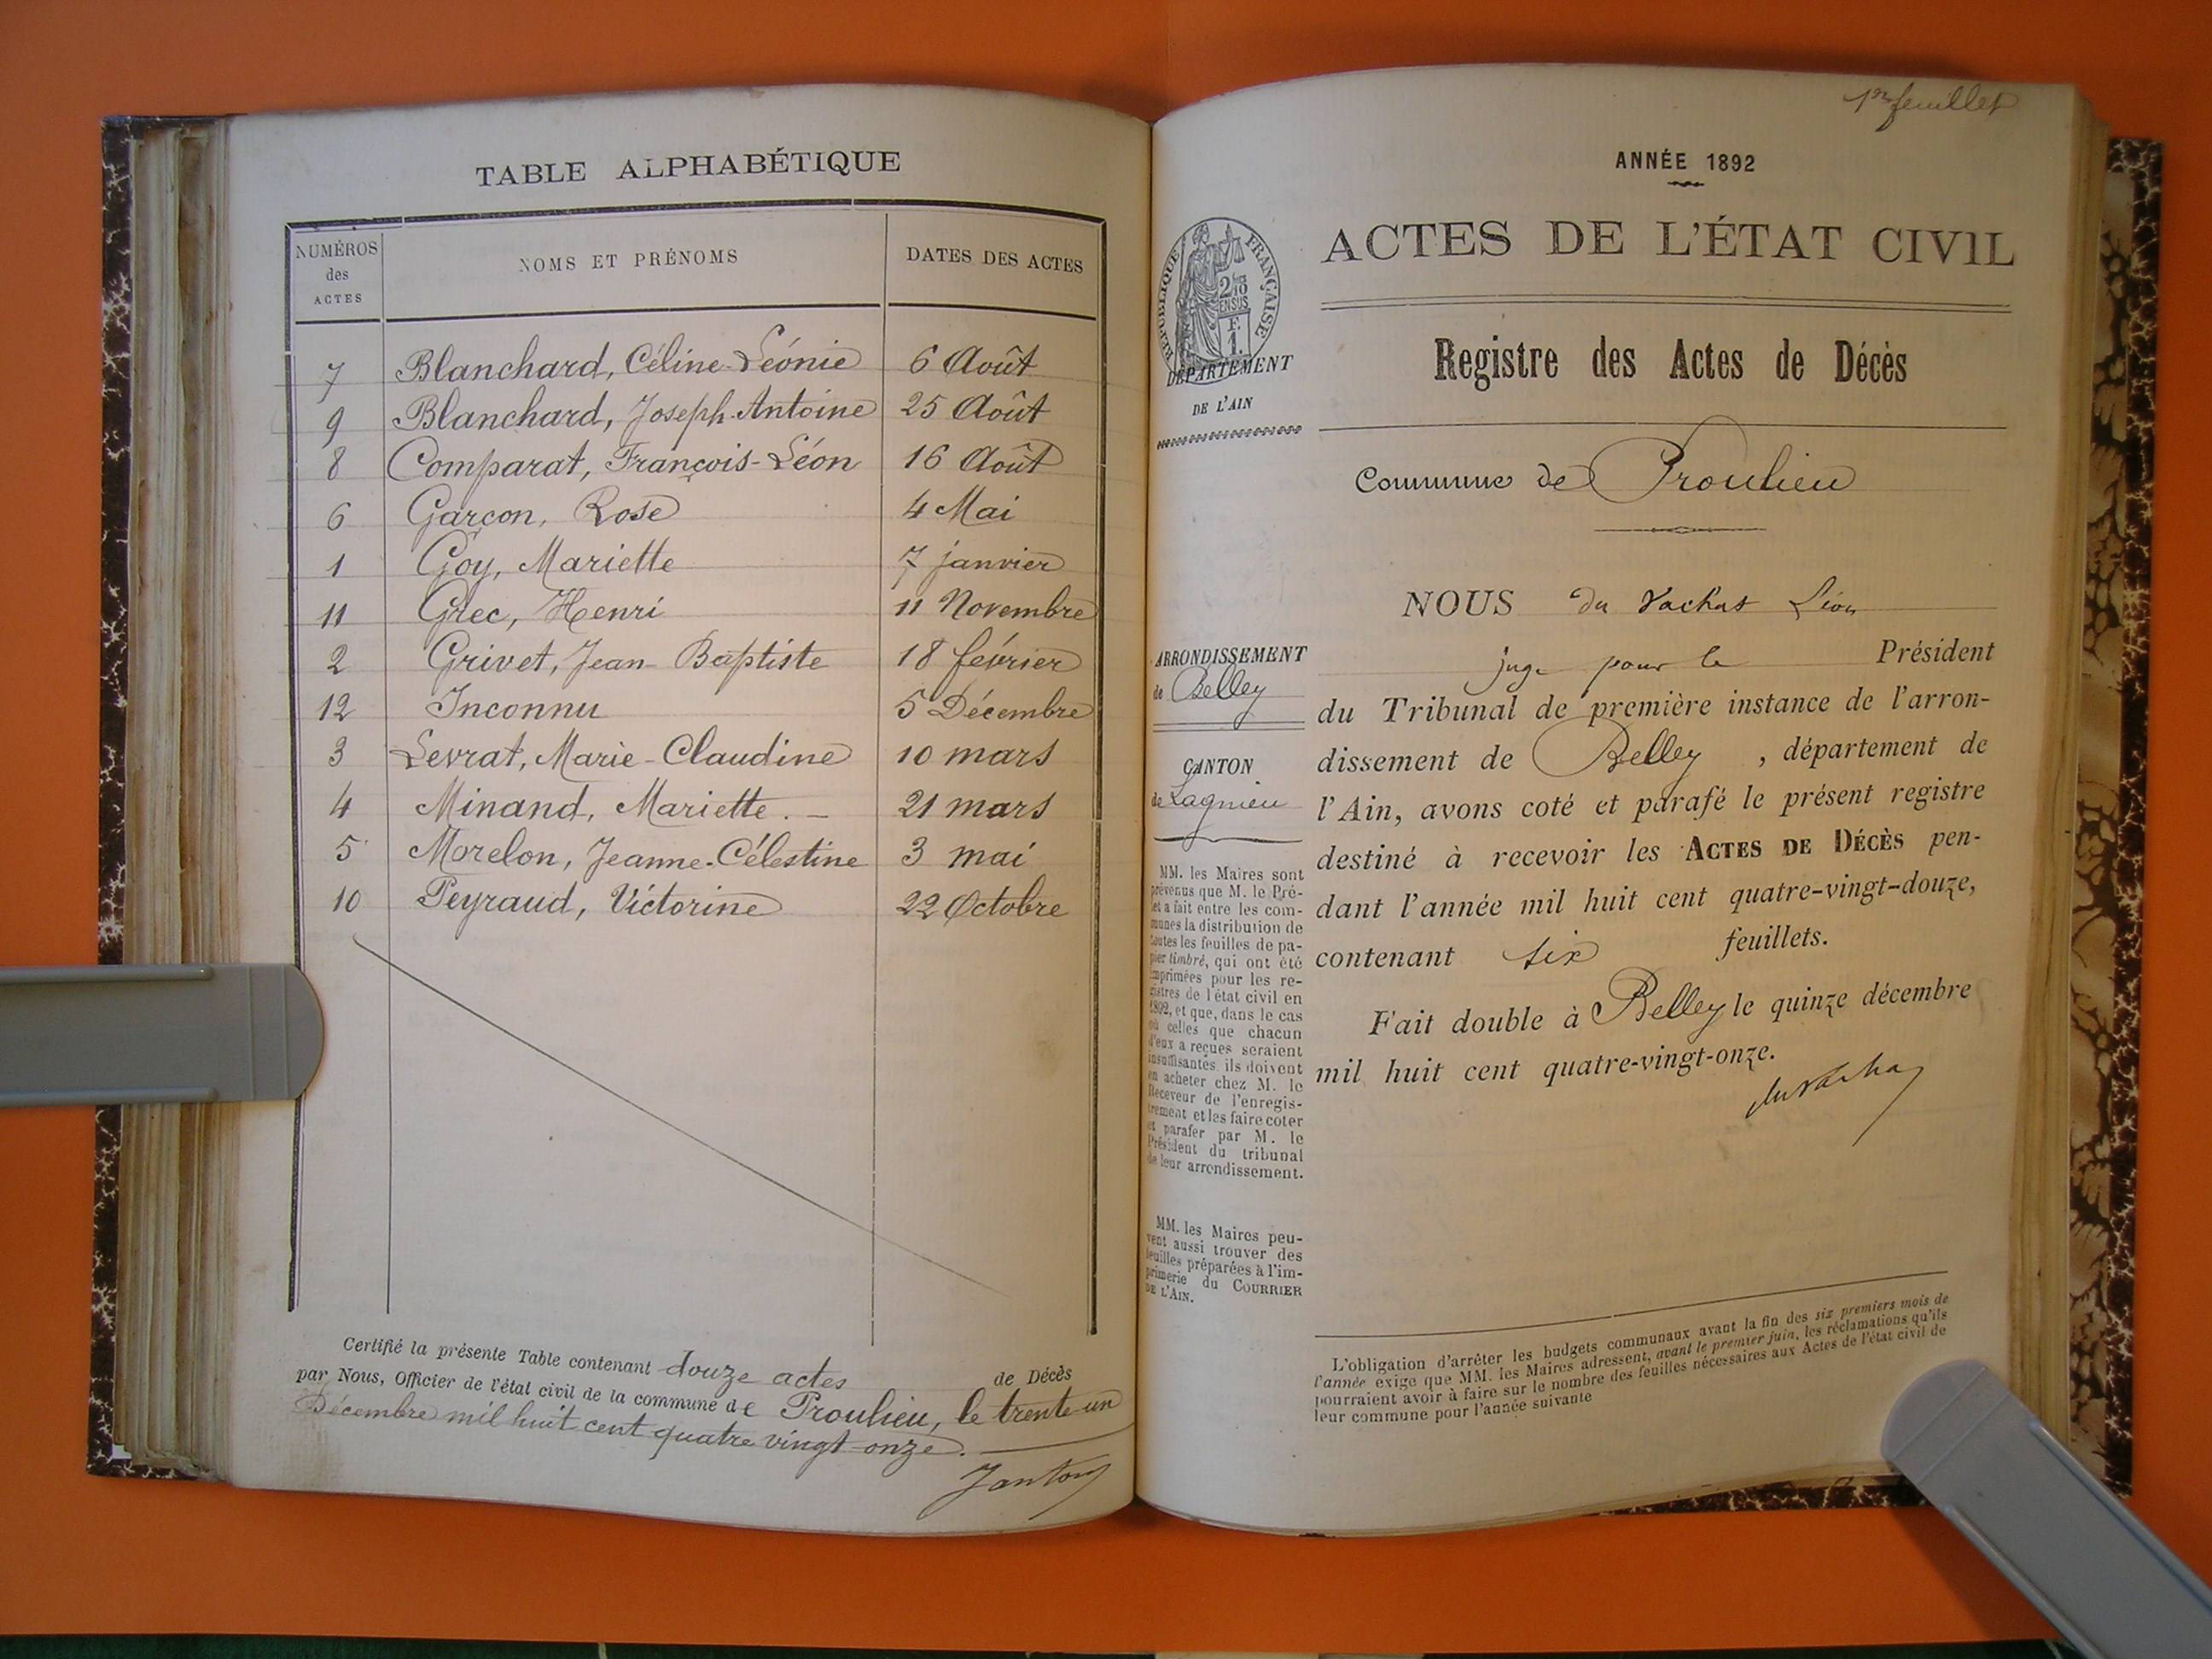 TABLE ALPHABÉTIQUE
NUMÉROS des ACTES NOMS ET PRÉNOMS DATES DES ACTES
7 Blanchard, Céline-Léonie 6 Août
9 Blanchard, Joseph-Antoine 25 Août
8 Comparat, François-Léon 16 Août
6 Garçon, Rose 4 Mai
1 Goy, Mariette 7 janvier
11 Grec, Henri 11 Novembre
2 Grivet, Jean-Baptiste 18 février
12 Inconnu 5 Décembre
3 Levrat, Marie-Claudine 10 mars
4 Minand, Mariette. - 21 mars
5 Morelon, Jeanne-Célestine 3 mai
10 Peyraud, Victorine 22 Octobre
Certifié la présente Table contenant douze actes de Décès
par Nous, Officier de l'état civil de la commune de Proulieu, le trente-un
Décembre mil huit cent quatre vingt-onze.
1er feuillet
ANNÉE 1892
ACTES DE L'ÉTAT CIVIL
RÉPUBLIQUE FRANÇAISE
DÉPARTEMENT
DE L'AIN
Registre des Actes de Décès
Commune de Proulieu
NOUS du Vachat Léon
juge pour le Président
du Tribunal de première instance de l'arron-
dissement de Belley, département de
l'Ain, avons coté et parafé le présent registre
destiné à recevoir les ACTES DE DÉCÈS pen-
dant l'année mil huit cent quatre-vingt-douze,
contenant six feuillets.
Fait double à Belley le quinze décembre
mil huit cent quatre-vingt-onze.
ARRONDISSEMENT
de Belley
CANTON
de Lagnieu
MM. les Maires sont
prévenus que M. le Pré-
fet a fait entre les com-
munes la distribution de
toutes les feuilles de pa-
pier timbré, qui ont été
imprimées pour les re-
gistres de l'état civil en
1892, et que, dans le cas
où celles que chacun
d'eux a reçues seraient
insuffisantes, ils doivent
en acheter chez M. le
Receveur de l'enregis-
trement et les faire coter
et parafer par M. le
Président du tribunal
de leur arrondissement.
MM. les Maires peu-
vent aussi trouver des
feuilles préparées à l'im-
primerie du COURRIER
DE L'AIN.
L'obligation d'arrêter les budgets communaux avant la fin des six premiers mois de
l'année exige que MM. les Maires adressent, avant le premier juin, les réclamations qu'ils
pourraient avoir à faire sur le nombre des feuilles nécessaires aux Actes de l'état civil de
leur commune pour l'année suivante